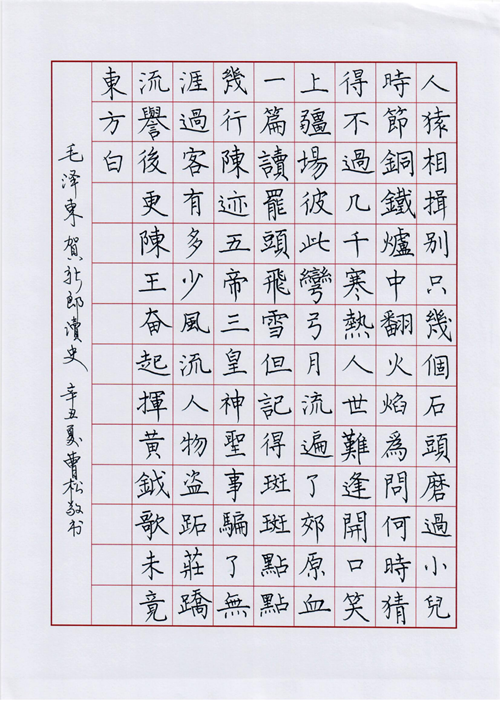 人猿相揖别只幾個石頭磨過小兒
時節銅鐵爐中翻火焰為問何時猜
得不過几千寒熱人世難逢開口笑
上疆場彼此彎弓月流遍了郊原血
一篇讀罷頭飛雪但記得斑斑點點
幾行陳迹五帝三皇神聖事騙了無
涯過客有多少風流人物盗跖莊蹻
流譽後更陳王奋起揮黄鉞歌未竟
東方白
毛泽東賀新郎讀史 辛丑夏曹松敬书